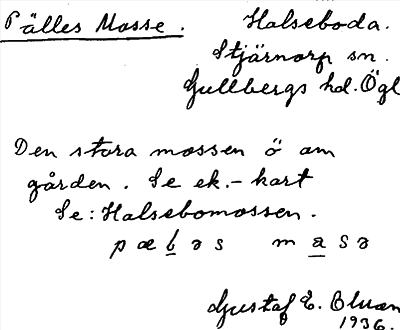 Pälles Mosse.
Halseboda.
Stjärnorp sn.
Gullbergs hd. Ögl
Den stora mossen ö om
gården. Se ek.-kart
Se: Halsebomossen.
Gustaf E.
1936.